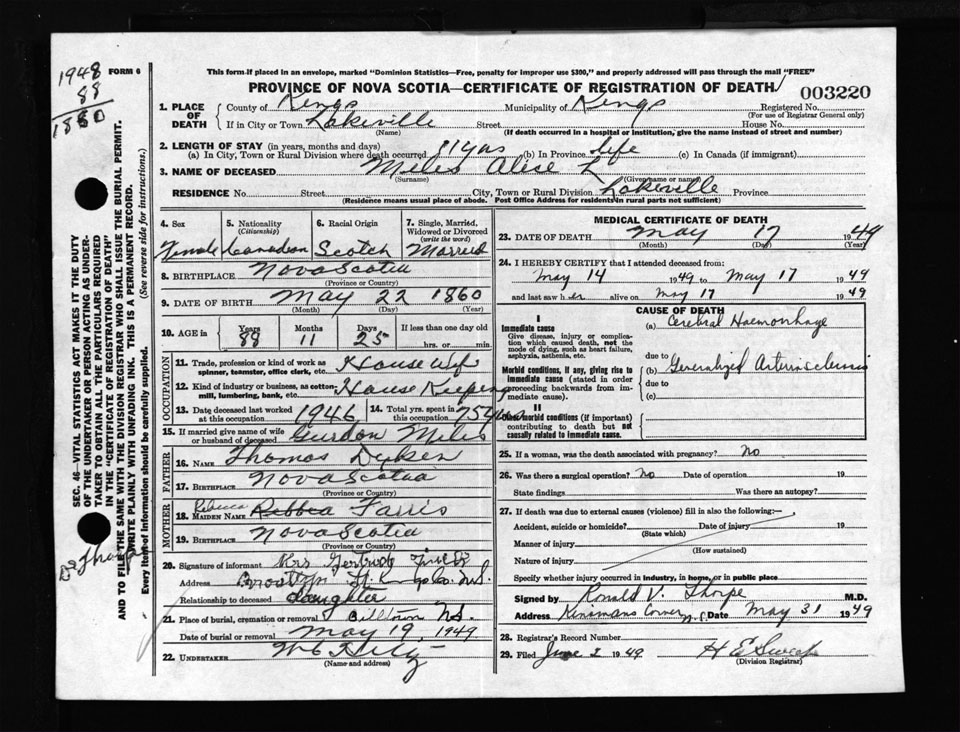 1948
88
1860
FORM 6
This form if placed in an envelope, marked "Dominion Statistics—Free, penalty for improper use $300," and properly addressed will pass through the mail "FREE"
PROVINCE OF NOVA SCOTIA—CERTIFICATE OF REGISTRATION OF DEATH
003220
1. PLACE OF DEATH
County of Kings Municipality of Kings Registered No.
(For use of Registrar General only)
If in City or Town Lakeville Street House No.
(Name) (If death occurred in a hospital or institution, give the name instead of street and number)
2. LENGTH OF STAY (in years, months and days)
(a) In City, Town or Rural Division where death occurred 71 yrs (b) In Province life (c) In Canada (if immigrant)
3. NAME OF DECEASED Miles Alice L
(Surname) (Given name or names)
RESIDENCE No Street City, Town or Rural Division Lakeville Province
(Residence means usual place of abode. Post Office Address for residents in rural parts not sufficient)
4. Sex 5. Nationality (Citizenship) 6. Racial Origin 7. Single, Married, Widowed or Divorced (write the word)
Female Canadian Scotch Married
8. BIRTHPLACE Nova Scotia
(Province or Country)
9. DATE OF BIRTH May 22 1860
(Month) (Day) (Year)
10. AGE in Years Months Days If less than one day old
88 11 25 hrs. or min.
OCCUPATION
11. Trade, profession or kind of work as spinner, teamster, office clerk, etc. House wife
12. Kind of industry or business, as cotton-mill, lumbering, bank, etc. House Keeping
13. Date deceased last worked at this occupation 1946 14. Total yrs. spent in this occupation 75 yrs
15. If married give name of wife or husband of deceased Gurdon Miles
FATHER
16. NAME Thomas
17. BIRTHPLACE Nova Scotia
(Province or Country)
MOTHER
Rebecca
18. MAIDEN NAME Rebbca Farris
19. BIRTHPLACE Nova Scotia
(Province or Country)
20. Signature of informant Mrs Gertrude
Address St. Kings Co. N.S.
Relationship to deceased daughter
21. Place of burial, cremation or removal Billtown N.S.
Date of burial or removal May 19, 1949
22. UNDERTAKER
(Name and address)
MEDICAL CERTIFICATE OF DEATH
23. DATE OF DEATH May 17 1949
(Month) (Day) (Year)
24. I HEREBY CERTIFY that I attended deceased from:
May 14 1949 to May 17 1949
and last saw her alive on May 17 1949
CAUSE OF DEATH
I
Immediate cause
Give disease, injury or complication which caused death, not the mode of dying, such as heart failure, asphyxia, asthenia, etc.
(a) Cerebral Haemorrhage
due to
Morbid conditions, if any, giving rise to immediate cause (stated in order proceeding backwards from immediate cause).
Generalized Arteriosclerosis
due to
(c)
II
Other morbid conditions (if important) contributing to death but not causally related to immediate cause.
25. If a woman, was the death associated with pregnancy? No
26. Was there a surgical operation? No Date of operation 19
State findings Was there an autopsy?
27. If death was due to external causes (violence) fill in also the following:—
Accident, suicide or homicide? Date of injury 19
(State which)
Manner of injury
(How sustained)
Nature of injury
Specify whether injury occurred in industry, in home, or in public place
Signed by Ronald V. Thorpe M.D.
Address Kinsmans Corner N.S. Date May 31 1949
28. Registrar's Record Number
29. Filed June 2 1949 H E
(Division Registrar)
SEC. 46—VITAL STATISTICS ACT MAKES IT THE DUTY
OF THE UNDERTAKER OR PERSON ACTING AS UNDER-
TAKER TO OBTAIN ALL THE PARTICULARS REQUIRED
IN THE "CERTIFICATE OF REGISTRATION OF DEATH"
AND TO FILE THE SAME WITH THE DIVISION REGISTRAR WHO SHALL ISSUE THE BURIAL PERMIT.
WRITE PLAINLY WITH UNFADING INK. THIS IS A PERMANENT RECORD.
Every item of Information should be carefully supplied. (See reverse side for instructions.)
Dr Thorpe